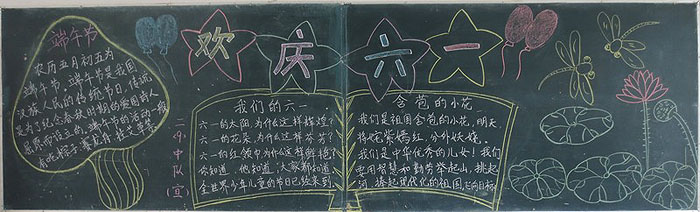 端午节
农历五月初五为
端午节。端午节是我国
汉族人民的传统节日。传说
是为了纪念春秋时期的爱国诗人
屈原而设立的。端午节的活动一般
有吃粽子、赛龙舟、挂艾草等
欢庆六一
二小中队(宣)
我们的六一
六一的太阳为什么这样辉煌?
六一的花朵为什么这样芬芳?
六一的红领巾为什么这样鲜艳?
你知道,他知道,大家都知道
全世界少年儿童的节日已经来到
含苞的小花
我们是祖国含苞的小花,明天
将姹紫嫣红,分外妖娆。
我们是中华优秀的儿女!我们
要用智慧和勤劳举起山,挑起
河,捧起现代化的祖国